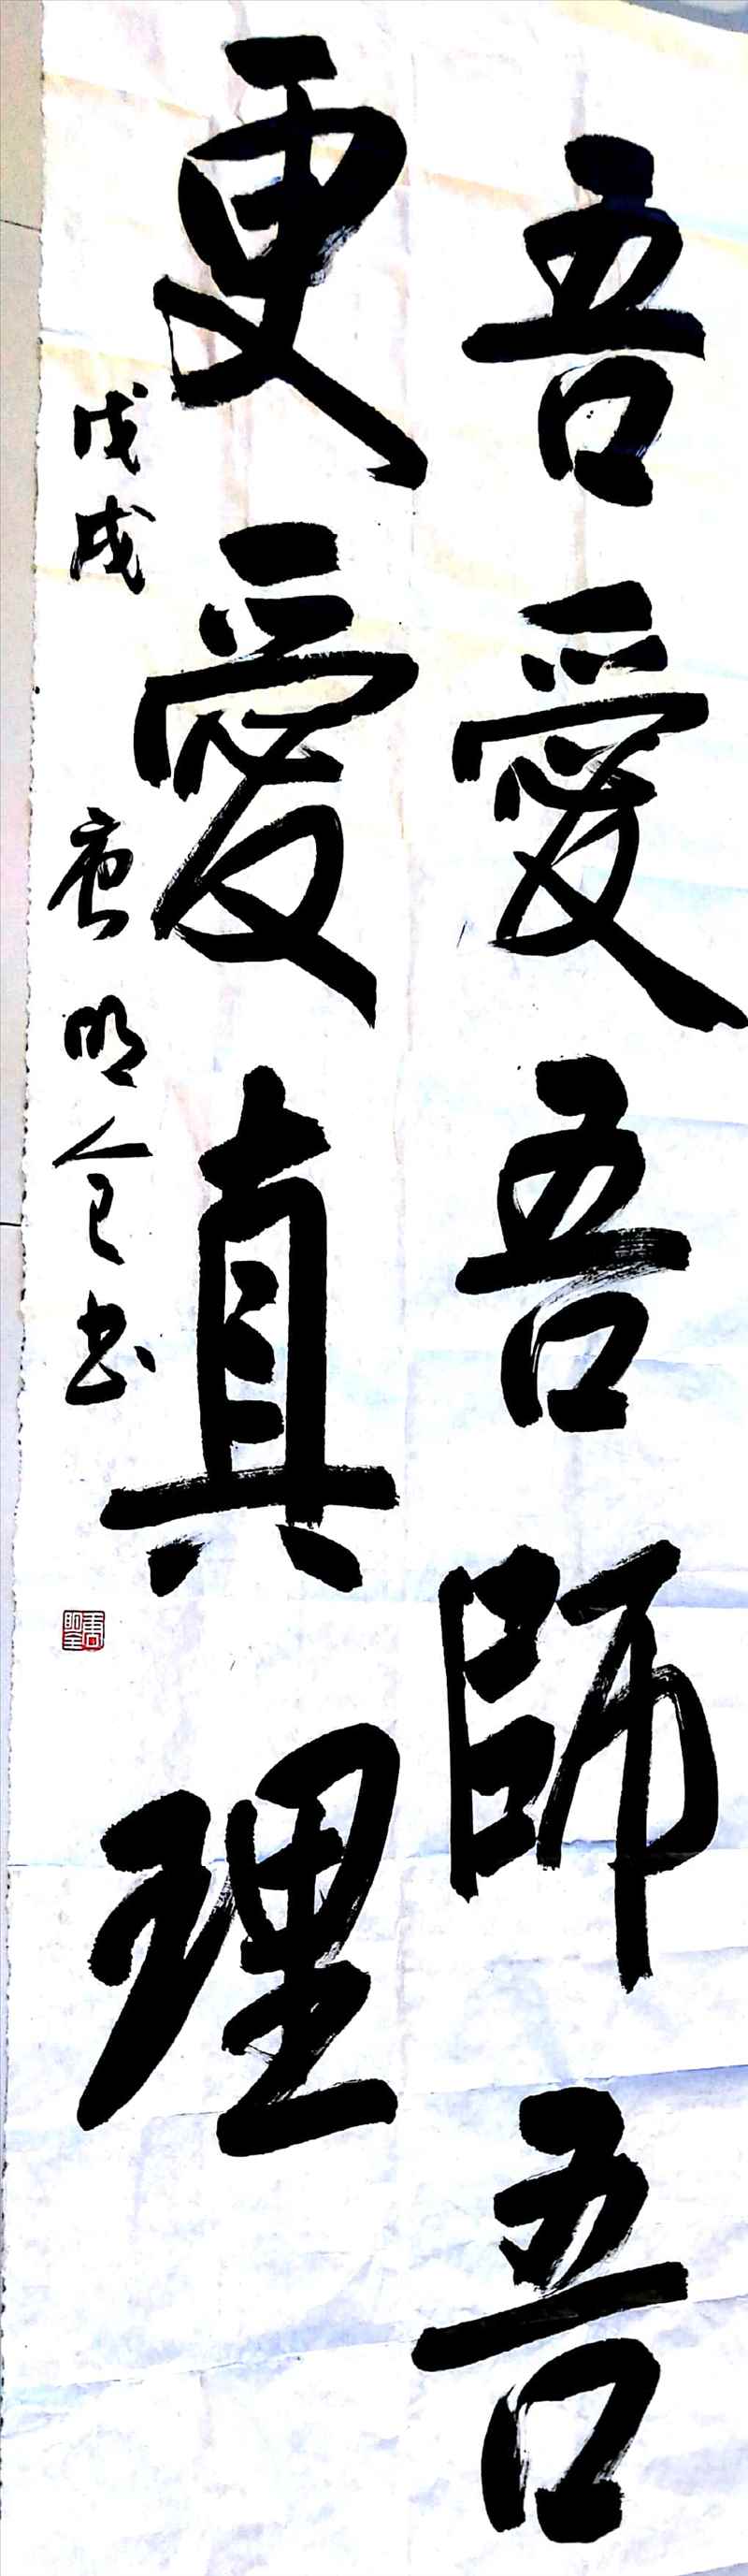 吾愛吾師吾
更愛真理
戊戌 唐明仓书